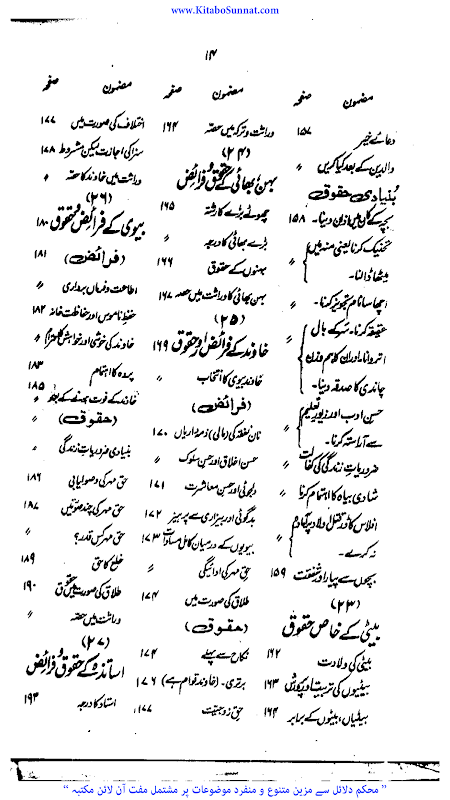 www.KitaboSunnat.com
۱۴
مضمون صفحہ
دعائے خیر ۱۵۷
والدین کے بعد کیا کریں ″
بنیادی حقوق
بچے کے کان میں اذان دینا۔ ۱۵۸
تحنیک کرنا یعنی منہ میں
میٹھا ڈالنا۔ ″
اچھا سا نام تجویز کرنا۔ ″
عقیقہ کرنا۔ سر کے بال
اتروانا اور ان کا ہم وزن
چاندی کا صدقہ دینا۔ ″
حسن ادب اور زیور تعلیم
سے آراستہ کرنا۔ ″
ضروریات زندگی کی کفالت ″
شادی بیاہ کا اہتمام کرنا ″
افلاس کا ڈر قتل اولاد پر آمادہ
نہ کرے۔ ″
بچوں سے پیار اور شفقت ۱۵۹
(۲۳)
بیٹی کے خاص حقوق
بیٹی کی ولادت ۱۶۲
بیٹیوں کی تربیت اور پرورش ۱۶۳
بیٹیاں، بیٹوں کے برابر ۱۶۴
مضمون صفحہ
وراثت و ترکہ میں حصہ ۱۶۴
(۲۴)
بہن/بھائی کے حقوق و فرائض
چھوٹے بڑے کا رشتہ ۱۶۵
بڑے بھائی کا درجہ ″
بہنوں کے حقوق ۱۶۶
بہن بھائی کا وراثت میں حصہ ۱۶۷
(۲۵)
خاوند کے فرائض اور حقوق ۱۶۹
خاوند بیوی کا انتخاب ″
(فرائض)
نان نفقہ کی (مالی) ذمہ داریاں ۱۷۰
حسن اخلاق اور حسن سلوک ″
دلجوئی اور حسن معاشرت ۱۷۱
بدگوئی اور بیزاری سے پرہیز ۱۷۲
بیویوں کے درمیان کامل مساوات ۱۷۳
حق مہر کی ادائیگی ″
طلاق کی صورت میں ۱۷۴
(حقوق)
نکاح سے پہلے ۱۷۴
برتری۔ (خاوند قوام ہے) ۱۷۶
حق زوجیت ۱۷۷
مضمون صفحہ
اختلاف کی صورت میں ۱۷۷
سزا کی اجازت لیکن مشروط ۱۷۸
وراثت میں خاوند کا حصہ ″
(۲۶)
بیوی کے فرائض و حقوق ۱۸۰
(فرائض) ۱۸۱
اطاعت و فرمان برداری ″
حفظ ناموس اور حفاظت خانہ ۱۸۲
خاوند کی خوشی اور خواہش کا احترام ″
پردہ کا اہتمام ۱۸۳
خاوند کے فوت ہونے کے بعد ۱۸۵
(حقوق) ″
بنیادی ضروریات زندگی ″
حق مہر کی وصولیابی ۱۸۶
حق مہر کی چند صورتیں ۱۸۷
حق مہر کس قدر؟ ″
خلع کا حق ۱۸۹
طلاق کی صورت میں حقوق ۱۹۰
وراثت میں حصہ ″
(۲۷)
اساتذہ کے حقوق و فرائض
استاد کا درجہ ۱۹۳
" محکم دلائل سے مزین متنوع و منفرد موضوعات پر مشتمل مفت آن لائن مکتبہ "